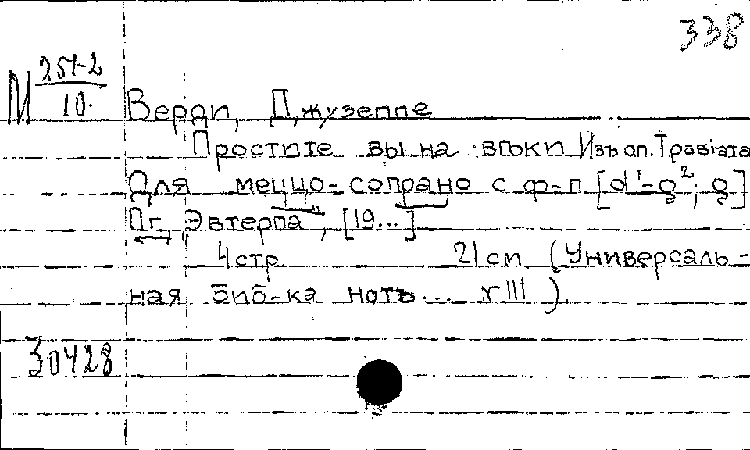 338
М 251-2/10
Верди, Джузеппе
Простите вы на веки Изъ оп. Травiата
Для меццо-сопрано с ф-п [d¹-g²; g]
Пг. "Эвтерпа", [19...]
4 стр 21 см (Универсаль-
ная биб-ка нотъ...
30428